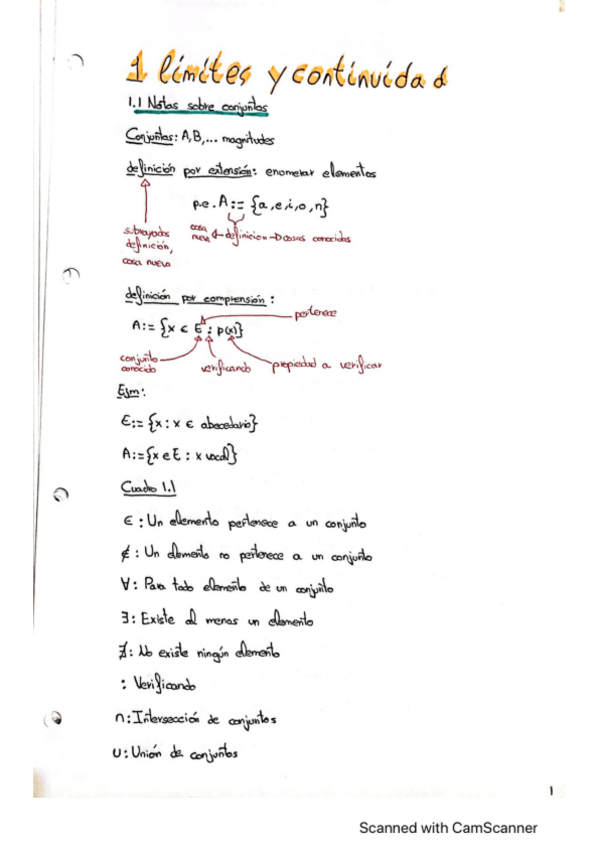 1 límites y continuidad
1.1 Notas sobre conjuntos
Conjuntos: A,B,... magnitudes
definición por extensión: enumerar elementos
p.e. A:= {a,e,i,o,n}
subrayados definición, cosa nueva
cosa nueva ← definicion → cosas conocidas
definición por comprensión:
pertenece
A:= {x ∈ E : p(x)}
conjunto conocido
verificando
propiedad a verificar
Ejm:
E:= {x : x ∈ abecedario}
A:= {x ∈ E : x vocal}
Cuadro 1.1
∈ : Un elemento pertenece a un conjunto
∉ : Un elemento no pertenece a un conjunto
∀ : Para todo elemento de un conjunto
∃ : Existe al menos un elemento
∄ : No existe ningún elemento
: Verificando
∩ : Intersección de conjuntos
∪ : Unión de conjuntos
1
Scanned with CamScanner